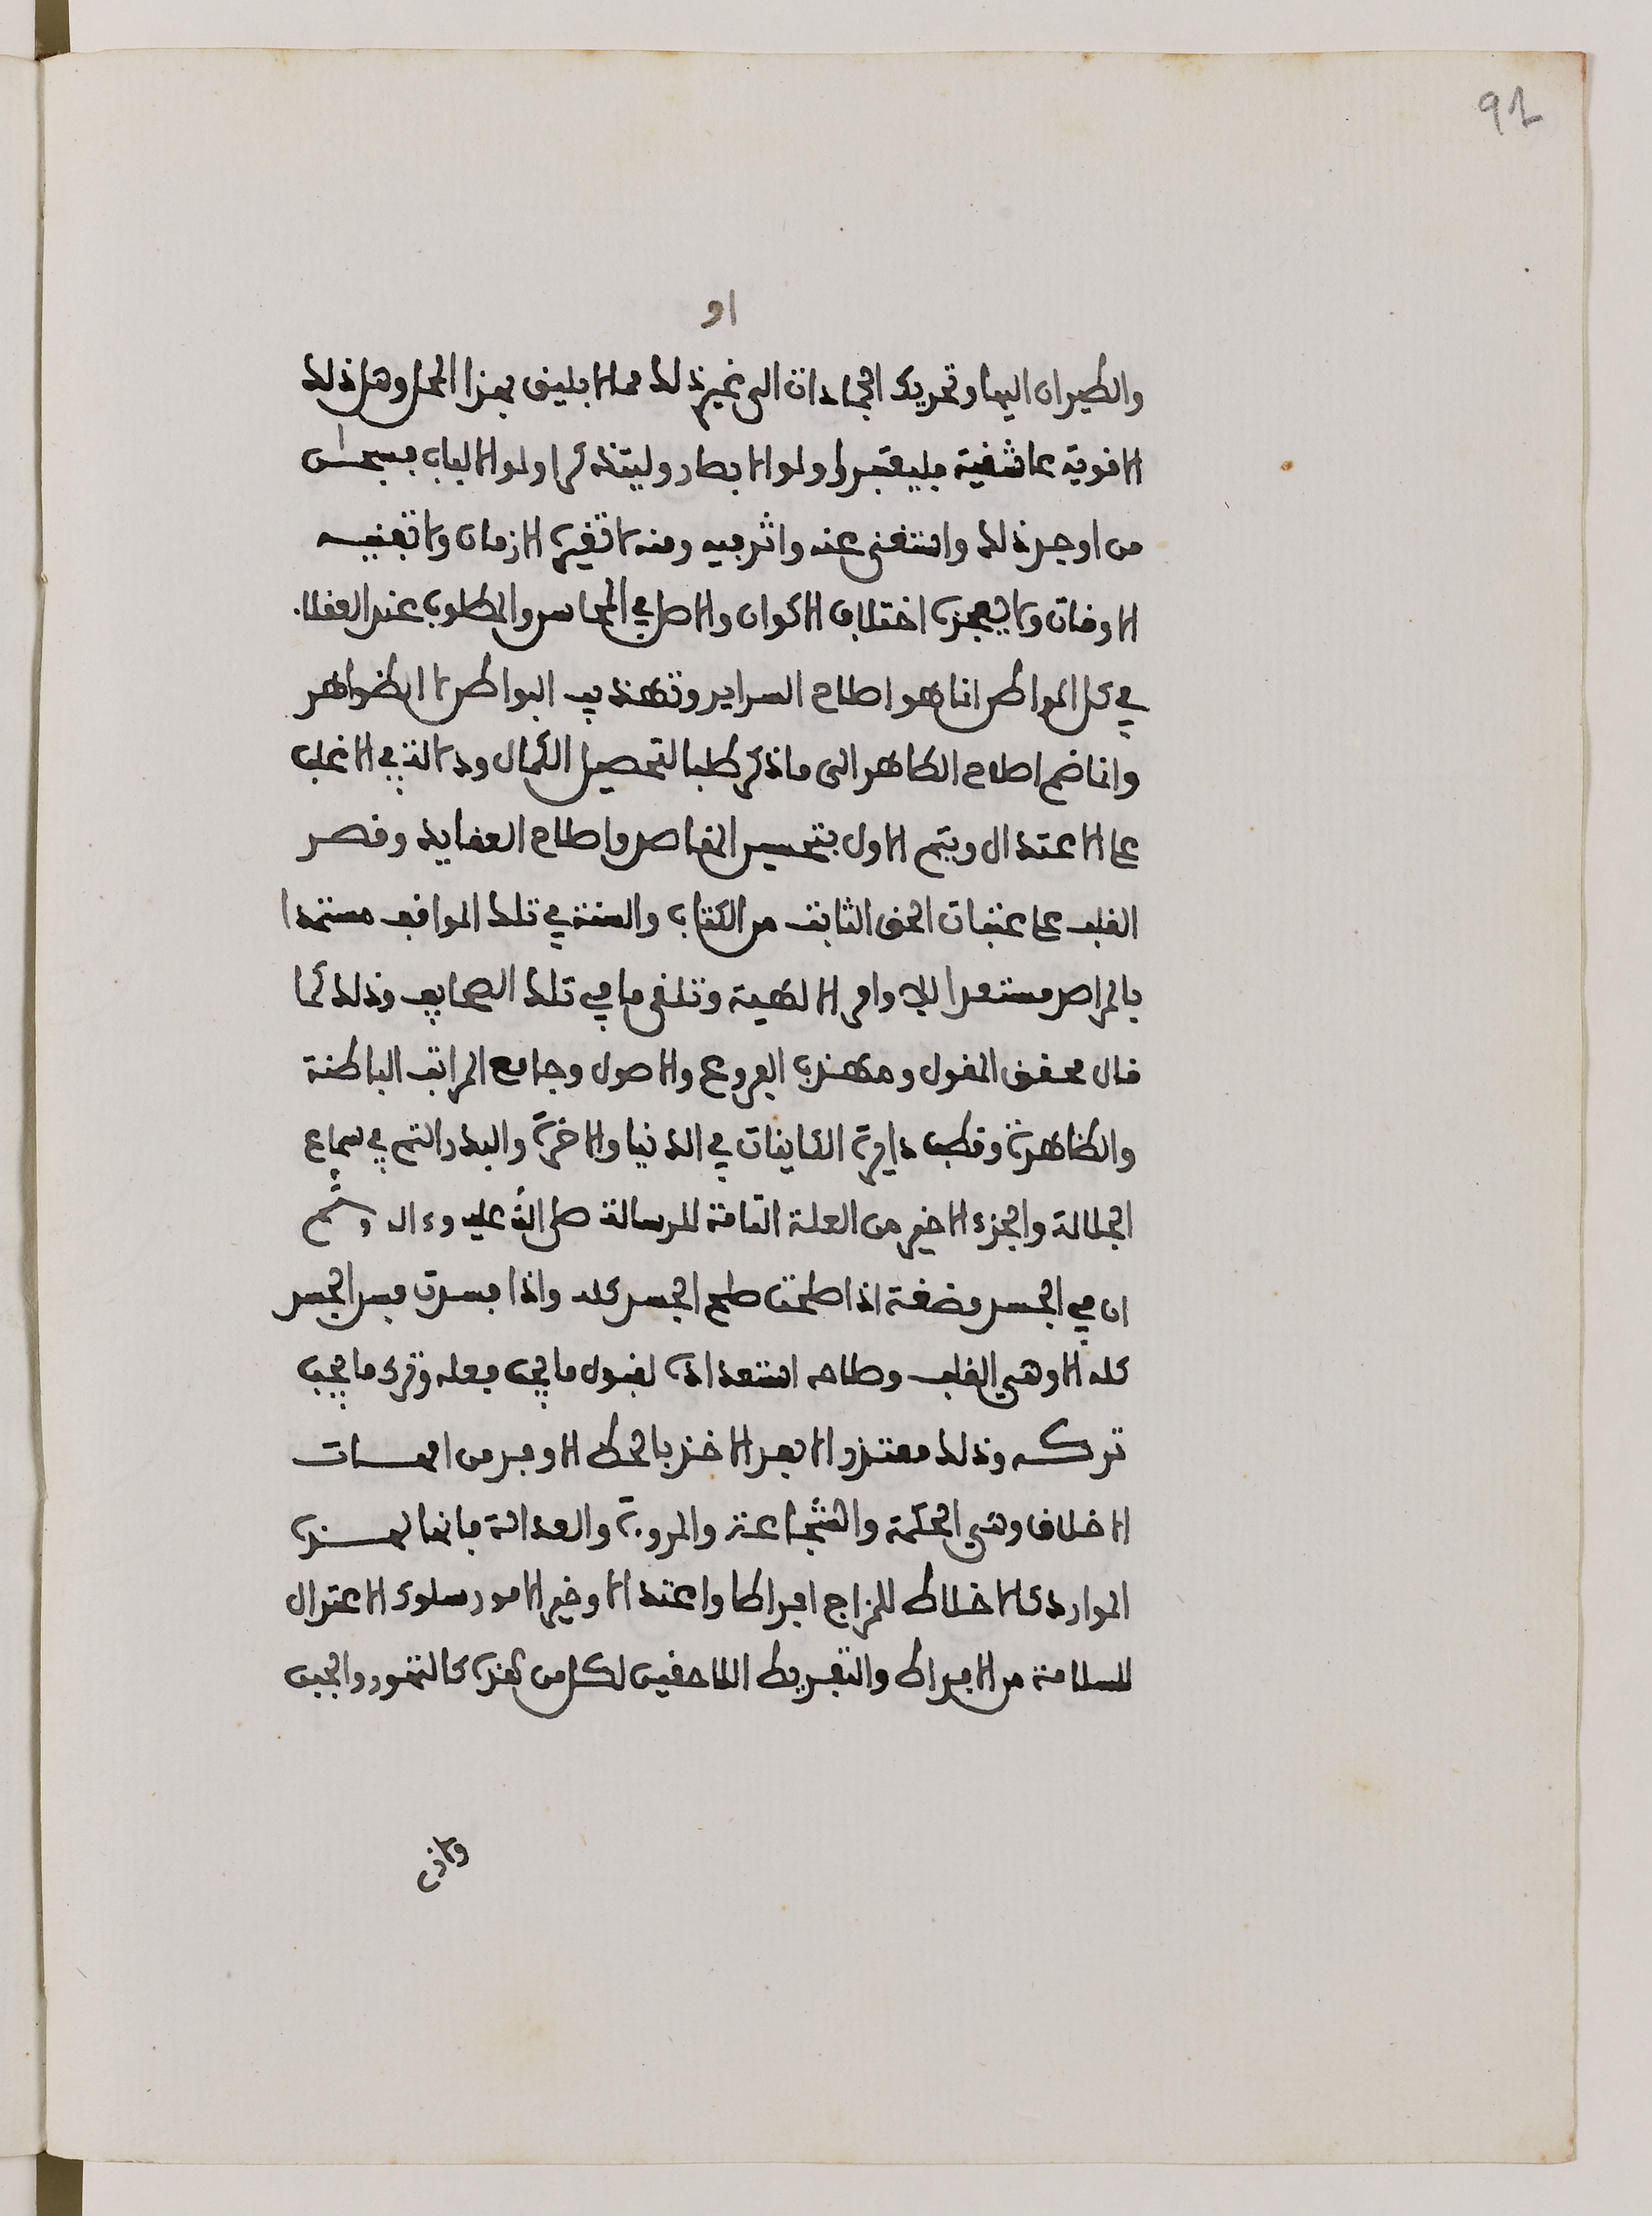 92
او
والطيران اليها وتحريك الجمادات الى غير ذلك مما لا يليق بهذا المحل وهل ذلك
الا قوية عاشقية فليعتبر اولوا الابصار وليتذكر اولوا الالباب فسبحان
من اوجد ذلك واستغنى عنه واثر فيه ومنه لا تغيره الازمان ولا تفنيه
الاوقات ولا يعجزه اختلاف الاكوان والاصل في المحاسن والمطلوب عند العقلاء
في كل المواطن انما هو اصلاح السراير وتهذيب البواطن لا الظواهر
وانما ضم اصلاح الظاهر الى ما ذكر طلبا لتحصيل الكمال ودلالته في الاغلب
على الاعتدال ويتم الاول بتحسين المقاصد واصلاح العقايد وقصر
القلب على عتبات الحق الثابت من الكتاب والسنة في تلك المواقف مستمدا
بالمراصد مستعدا للاوامر الالهية وتلقي ما في تلك الصحايف وذلك كما
قال محقق المقول ومهذب الفروع والاصول وجامع المراتب الباطنة
والظاهرة وقطب دايرة الكاينات في الدنيا والاخرة والبدر التم في سماء
الجلالة والجزء الاخير من العلة التامة للرسالة صلى الله عليه وءاله وسلم
ان في الجسد مضغة اذا صلحت صلح الجسد كله واذا فسدت فسد الجسد
كله الا وهي القلب وصلاحه استعداده لقبول ما يجب فعله وترك ما يجب
تركه وذلك متعذر الا بعد الاخذ بالحظ الاوفر من امهات
الاخلاق وهي الحكمة والشجاعة والمروة والعدالة فانها لهذه
الموارد كالاخلاط للمزاج افراطا واعتدالا وخير الامور سلوك الاعتدال
للسلامة من الافراط والتفريط اللاحقين لكل من هذه كالتهور والجبن
ولاذى